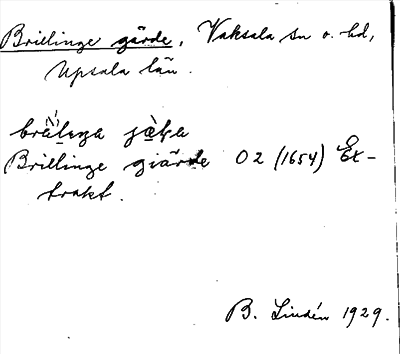 Brillinge gärde, Vaksala sn o. hd,
Upsala län.
Brillinge giärde O 2 (1654) Ex-
trakt.
B. Lindén 1929.